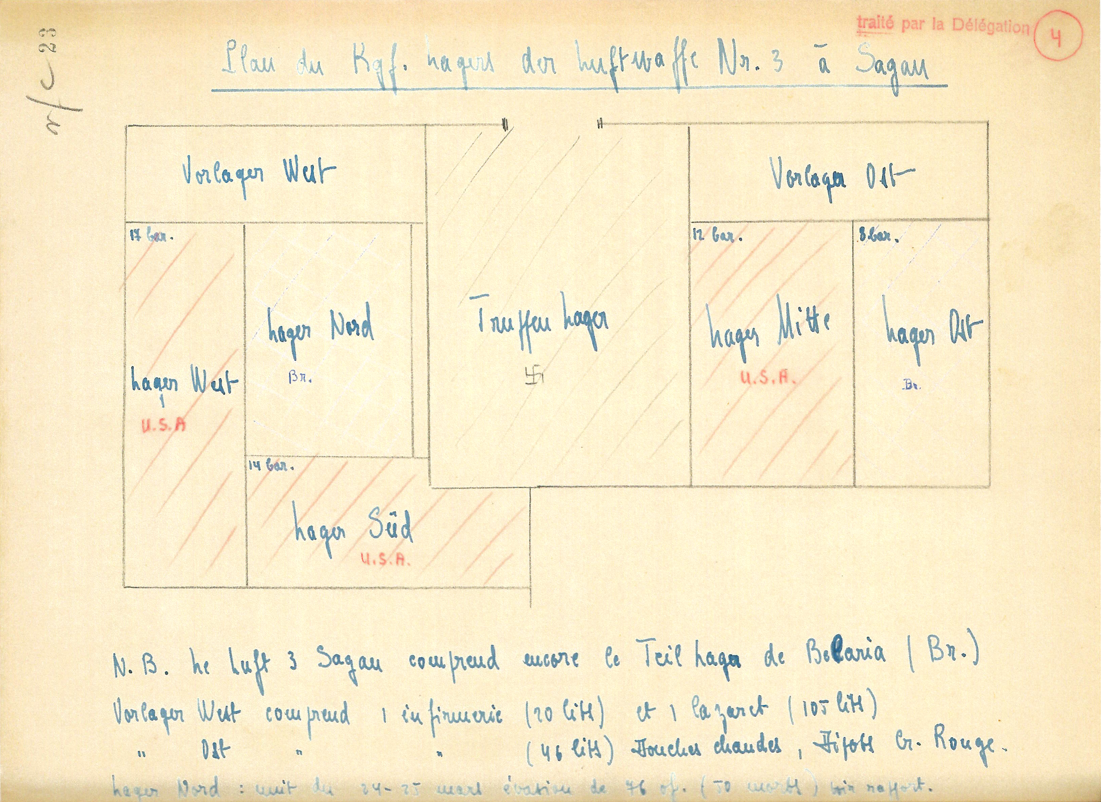 traité par la Délégation
4
r/c - 23
Plan du Kgf. Lagers der Luftwaffe Nr. 3 à Sagan
Vorlager West
Vorlager Ost
17 bar.
12 bar.
8 bar.
Lager Nord
Br.
Truppen Lager
Lager Mitte
U.S.A.
Lager Ost
Br.
Lager West
U.S.A
14 bar.
Lager Süd
U.S.A.
N.B. Le Luft 3 Sagan comprend encore le Teil Lager de Belaria (Br.)
Vorlager West comprend 1 infirmerie (20 lits) et 1 lazaret (105 lits)
" Ost " " (46 lits) Douches chaudes, Dépots Cr. Rouge.
Lager Nord : nuit du 24-25 mars évasion de 76 of. (50 morts) voir rapport.